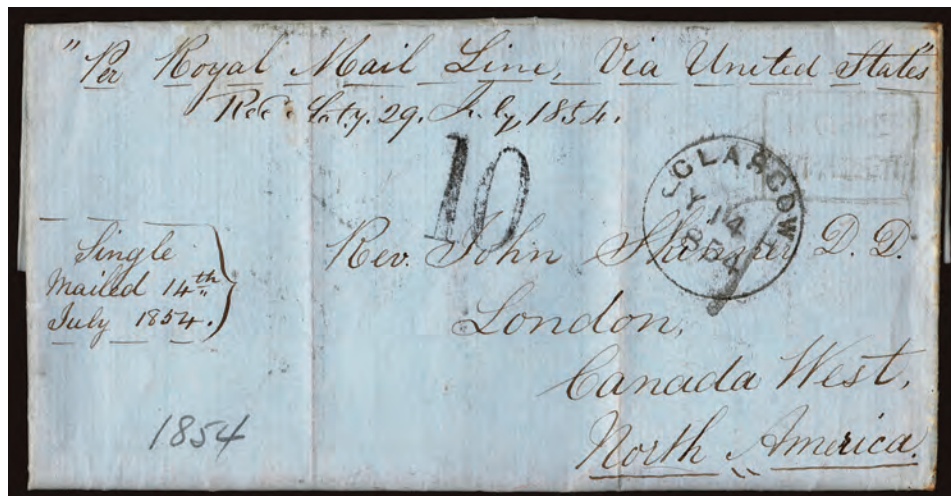 "Per Royal Mail Line, Via United States"
Rec'd Saty. 29. July 1854.
10
GLASGOW
JY 14
1854
Single
Mailed 14th
July 1854.
Rev. John Skinner D. D.
London,
Canada West,
North America.
1854